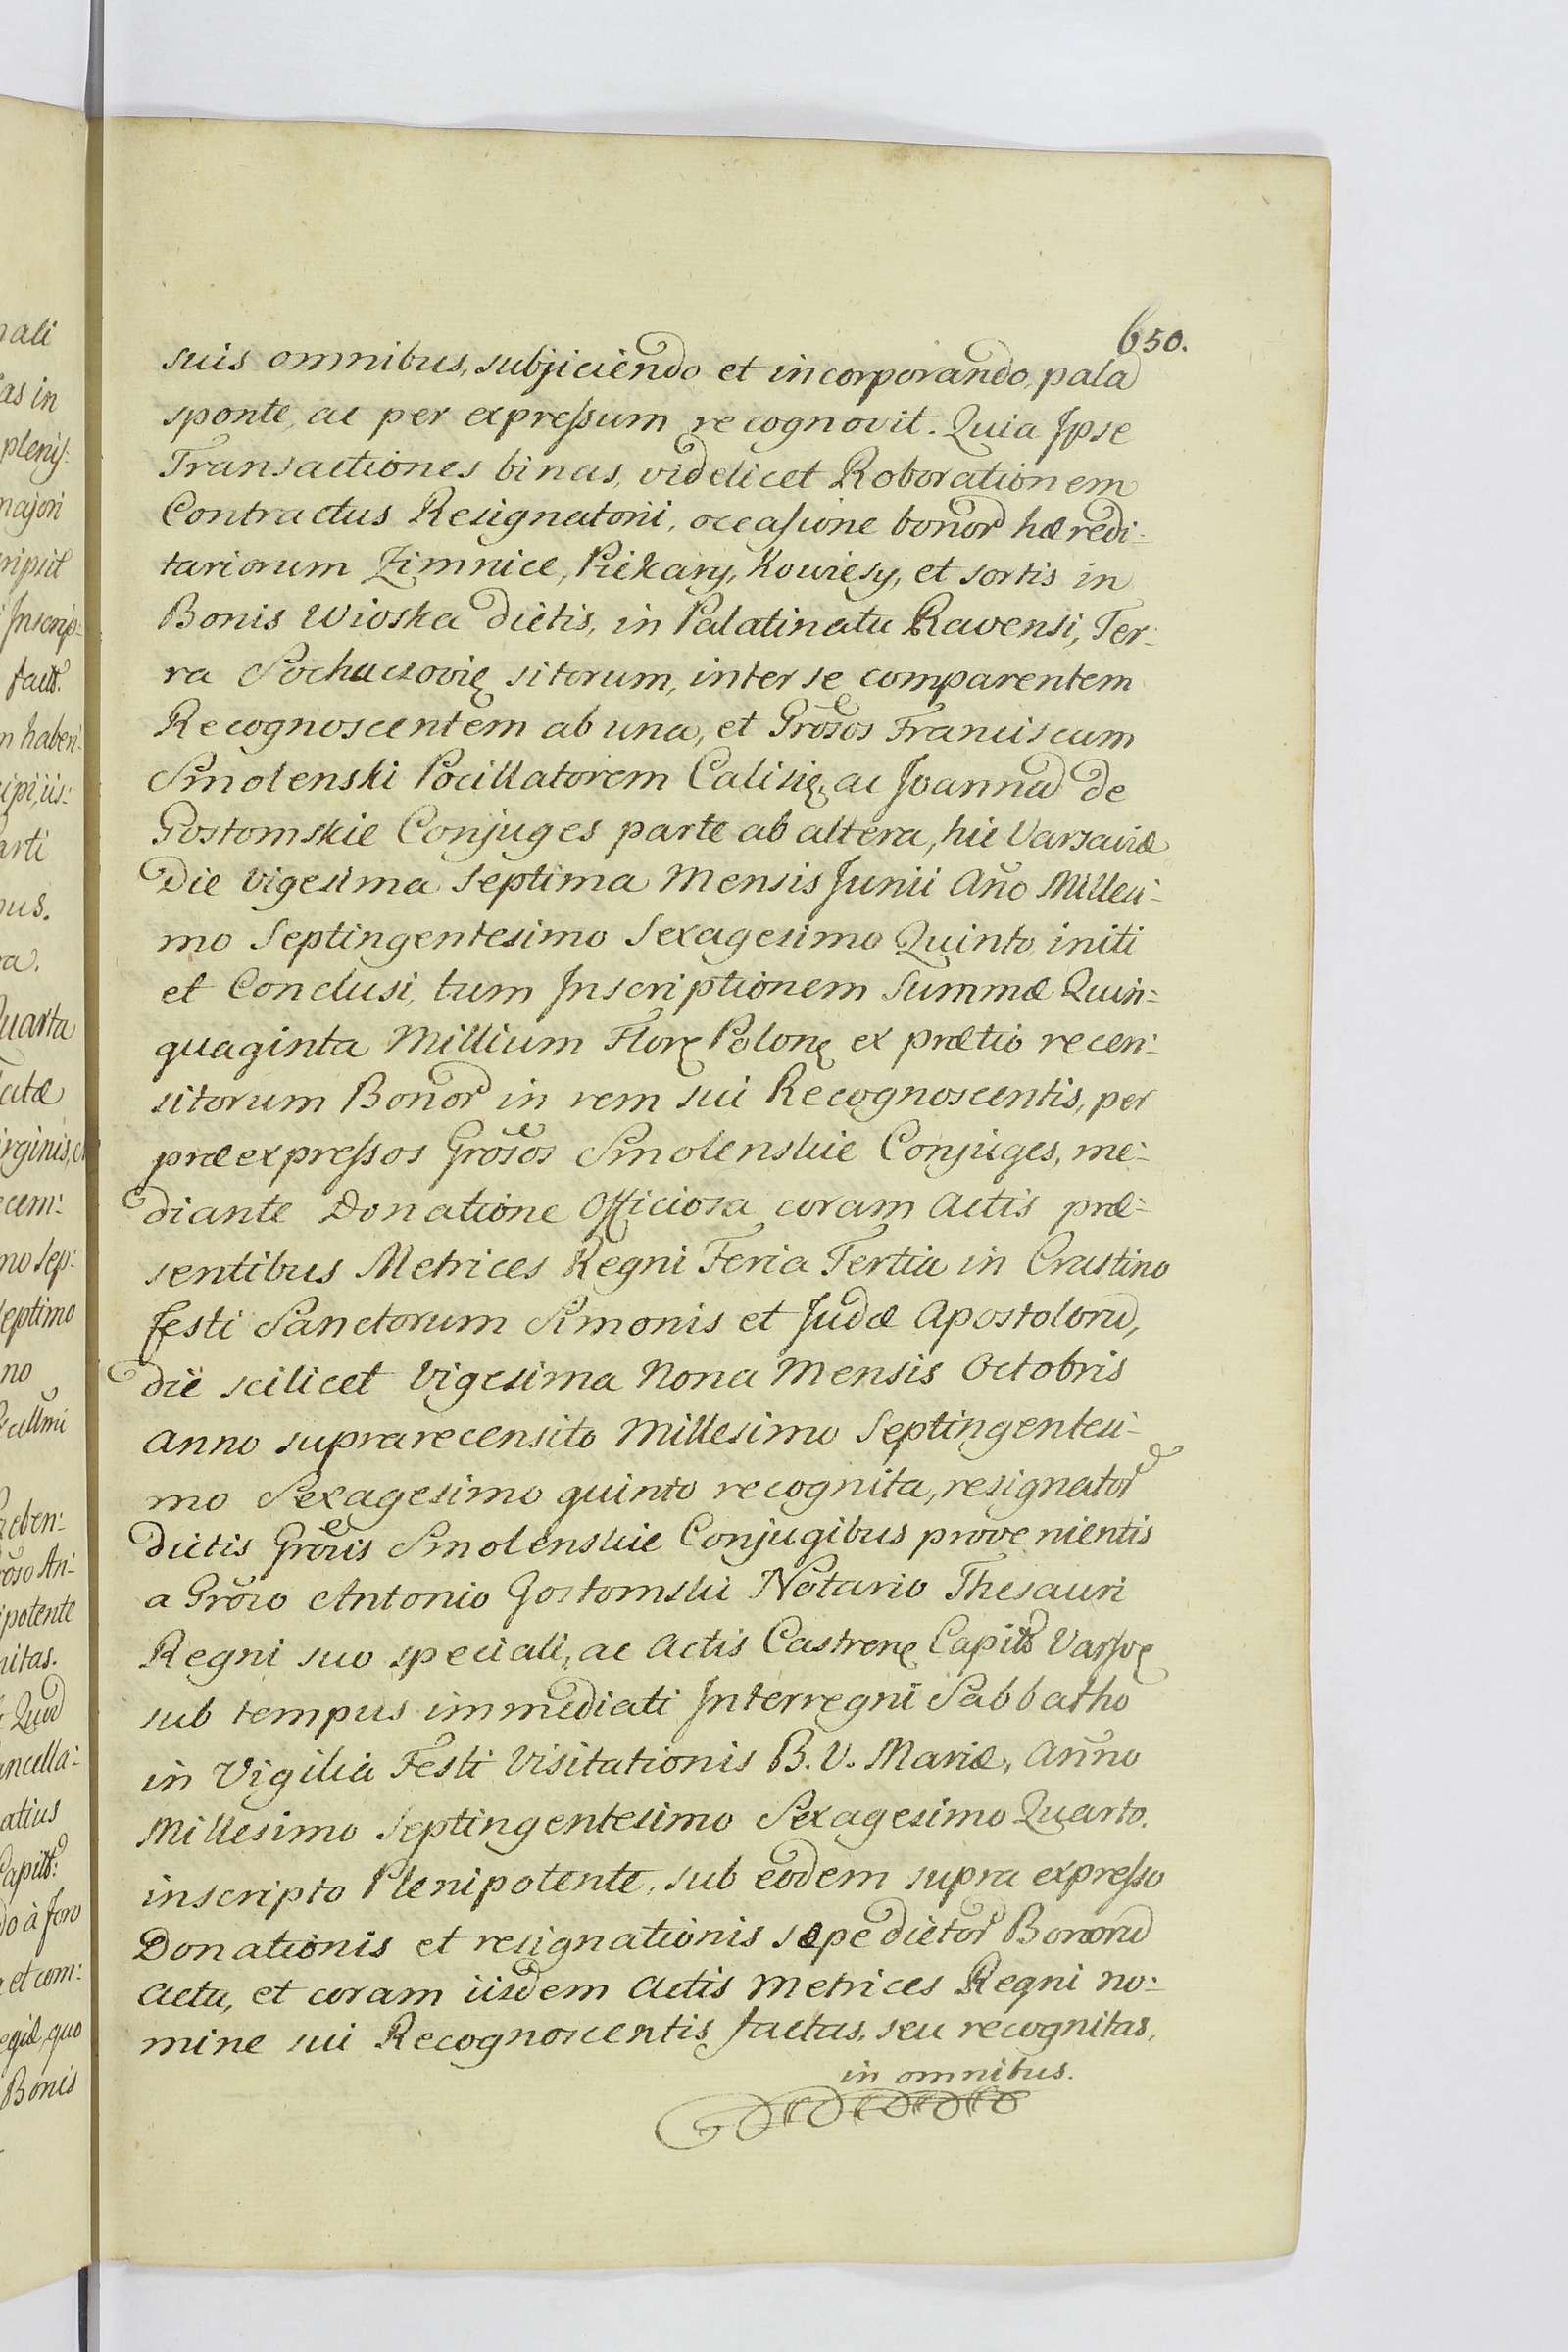 650.
suis omnibus, subjiciendo et incorporando, pala
sponte, ac per expreſsum recognovit. Quia Ipse
Transactiones binas, videlicet Roborationem
Contractus Resignatorii, occaſione bonor hæredi-
tariorum Zimnice, Piekary, Kowiesy, et sortis in
Bonis Wioska dictis, in Palatinatu Ravensi, Ter:
ra Sochaczovię sitorum, inter se comparentem
Recognoscentem ab una, et Grosos Franciscum
Smolenski Pocillatorem Calisię, ac Joanna de
Gostomskie Conjuges parte ab altera, hic Varsaviæ
Die Vigesima Septima Mensis Junii Año Millesi-
mo Septingentesimo Sexagesimo Quinto, initi
et Conclusi, tum Inscriptionem Summæ Quin:
quaginta Millium Florę Polonę ex prætio recen:
sitorum Bonor in rem sui Recognoscentis, per
præexpreſsos Grosos Smolenskie Conjuges, me:
diante Donatione Officiosa coram Actis præ:
sentibus Metrices Regni Feria Tertia in Crastino
festi Sanctorum Simonis et Judæ Apostoloru,
die scilicet Vigesima Nona Mensis Octobris
Anno suprarecensito Millesimo Septingentesi-
mo Sexagesimo quinto recognita, resignator
dictis Grosis Smolenskie Conjugibus provenientis
a Groso Antonio Gostomski Notario Thesauri
Regni suo speciali, ac Actis Castrenę Capitts Varſvę
sub tempus immediati Interregni Sabbatho
in Vigilia Festi Visitationis B. V. Mariæ, Anno
Millesimo Septingentesimo Sexagesimo Quarto.
inscripto Plenipotente, sub eodem supra expreſso
Donationis et resignationis sæpe dictor Bonoru
Actu, et coram iisdem Actis Metrices Regni no:
mine sui Recognoscentis factas, seu recognitas,
in omnibus.